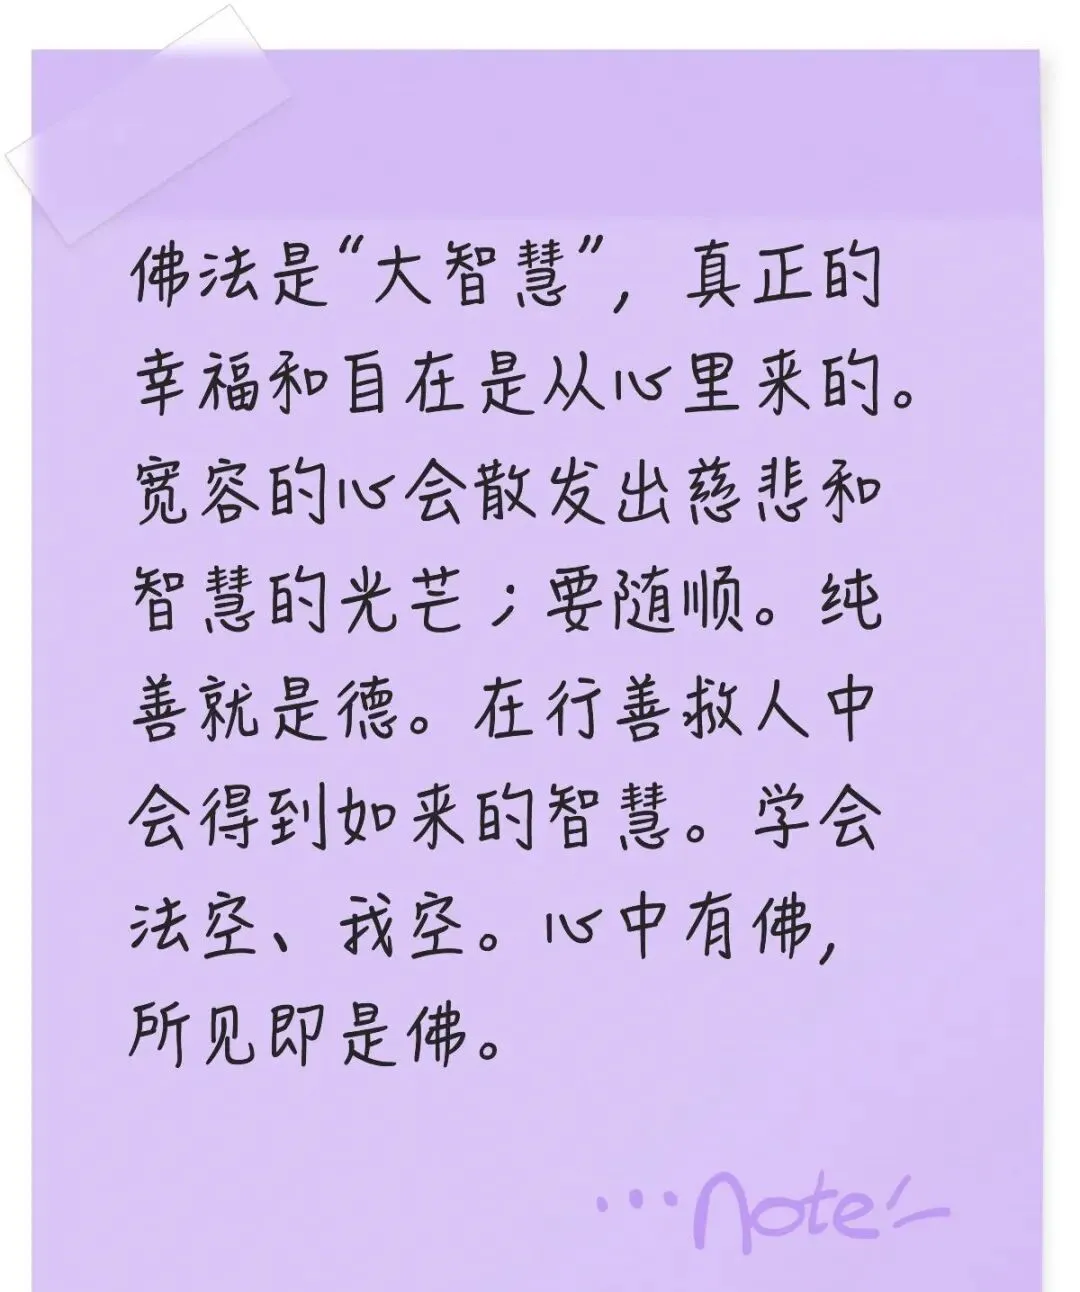 佛法是“大智慧”，真正的
幸福和自在是从心里来的。
宽容的心会散发出慈悲和
智慧的光芒；要随顺。纯
善就是德。在行善救人中
会得到如来的智慧。学会
法空、我空。心中有佛，
所见即是佛。
...Note